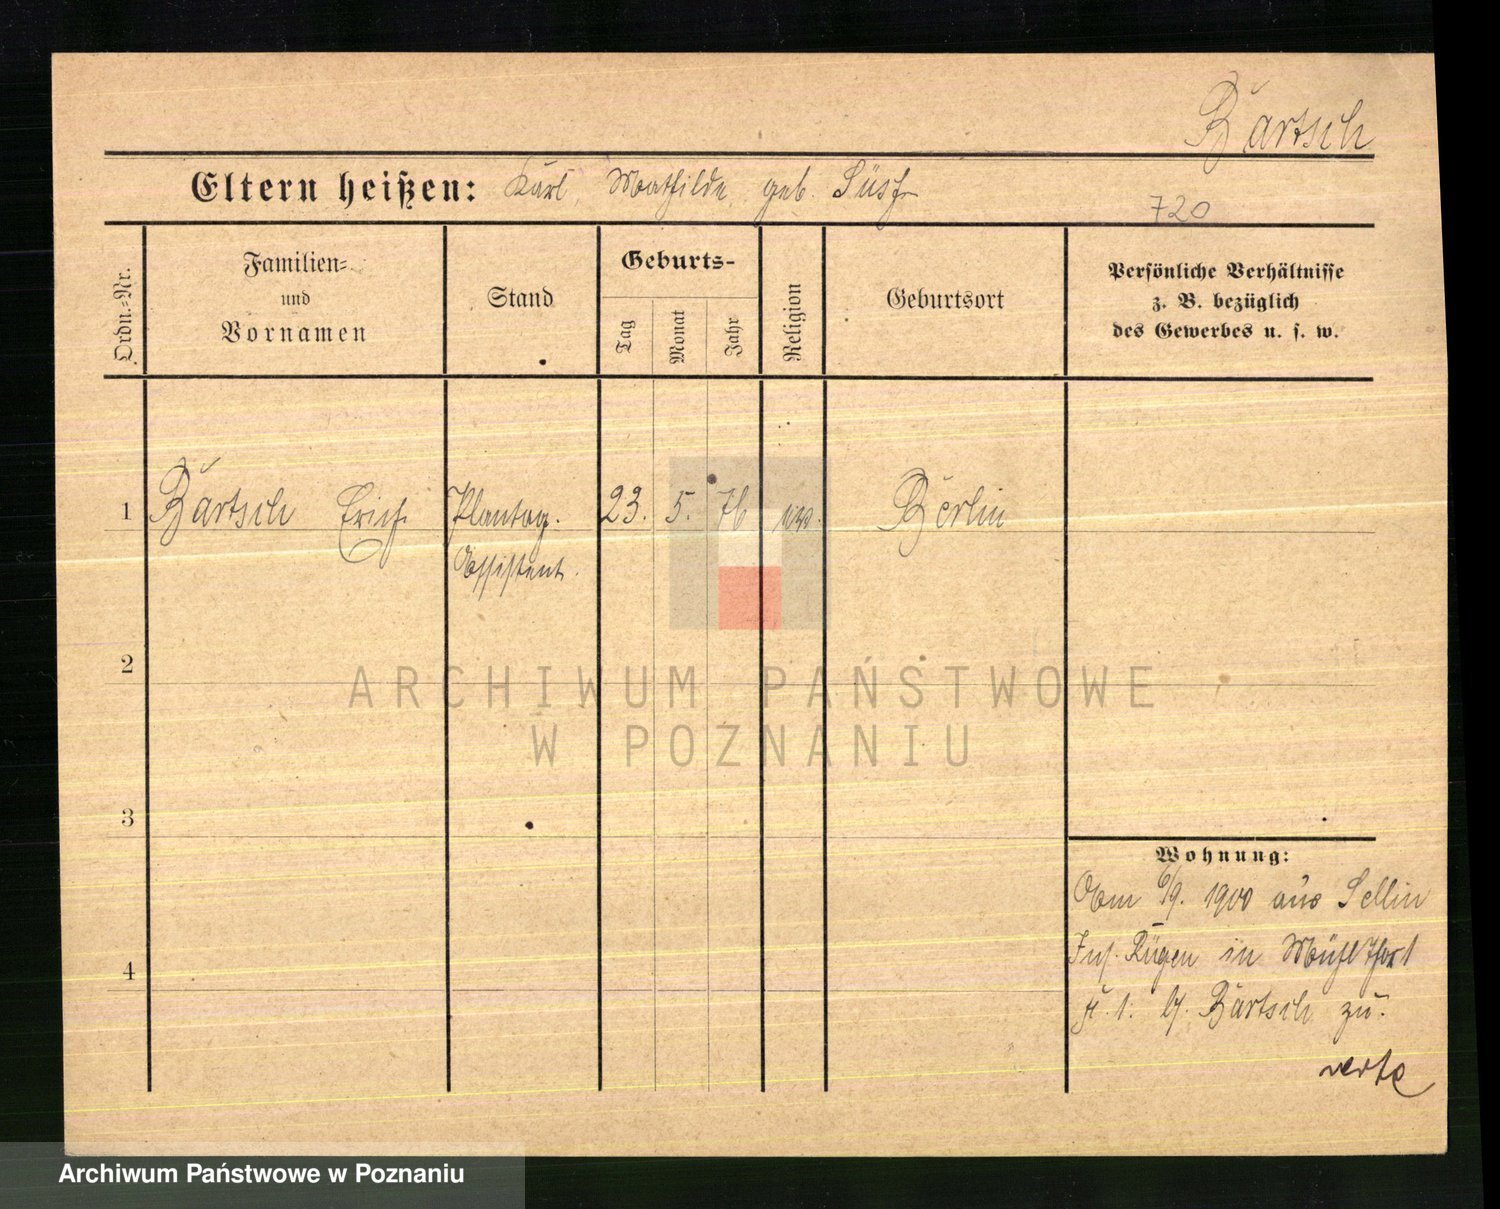 Bartsch
Eltern heißen: Karl, Mathilde, geb. Süß
720
Ordn.-Nr.
Familien-
und
Vornamen
Stand
Geburts-
Tag
Monat
Jahr
Religion
Geburtsort
Persönliche Verhältnisse
z. B. bezüglich
des Gewerbes u. s. w.
1 Bartsch Erich Plantag. 23. 5. 76 Berlin
Assistent.
2
ARCHIWUM PAŃSTWOWE
W POZNANIU
3
Wohnung:
Am 6/9. 1900 aus Sellin
Ins. Rügen in
4
1. Bartsch zu.
verte
Archiwum Państwowe w Poznaniu